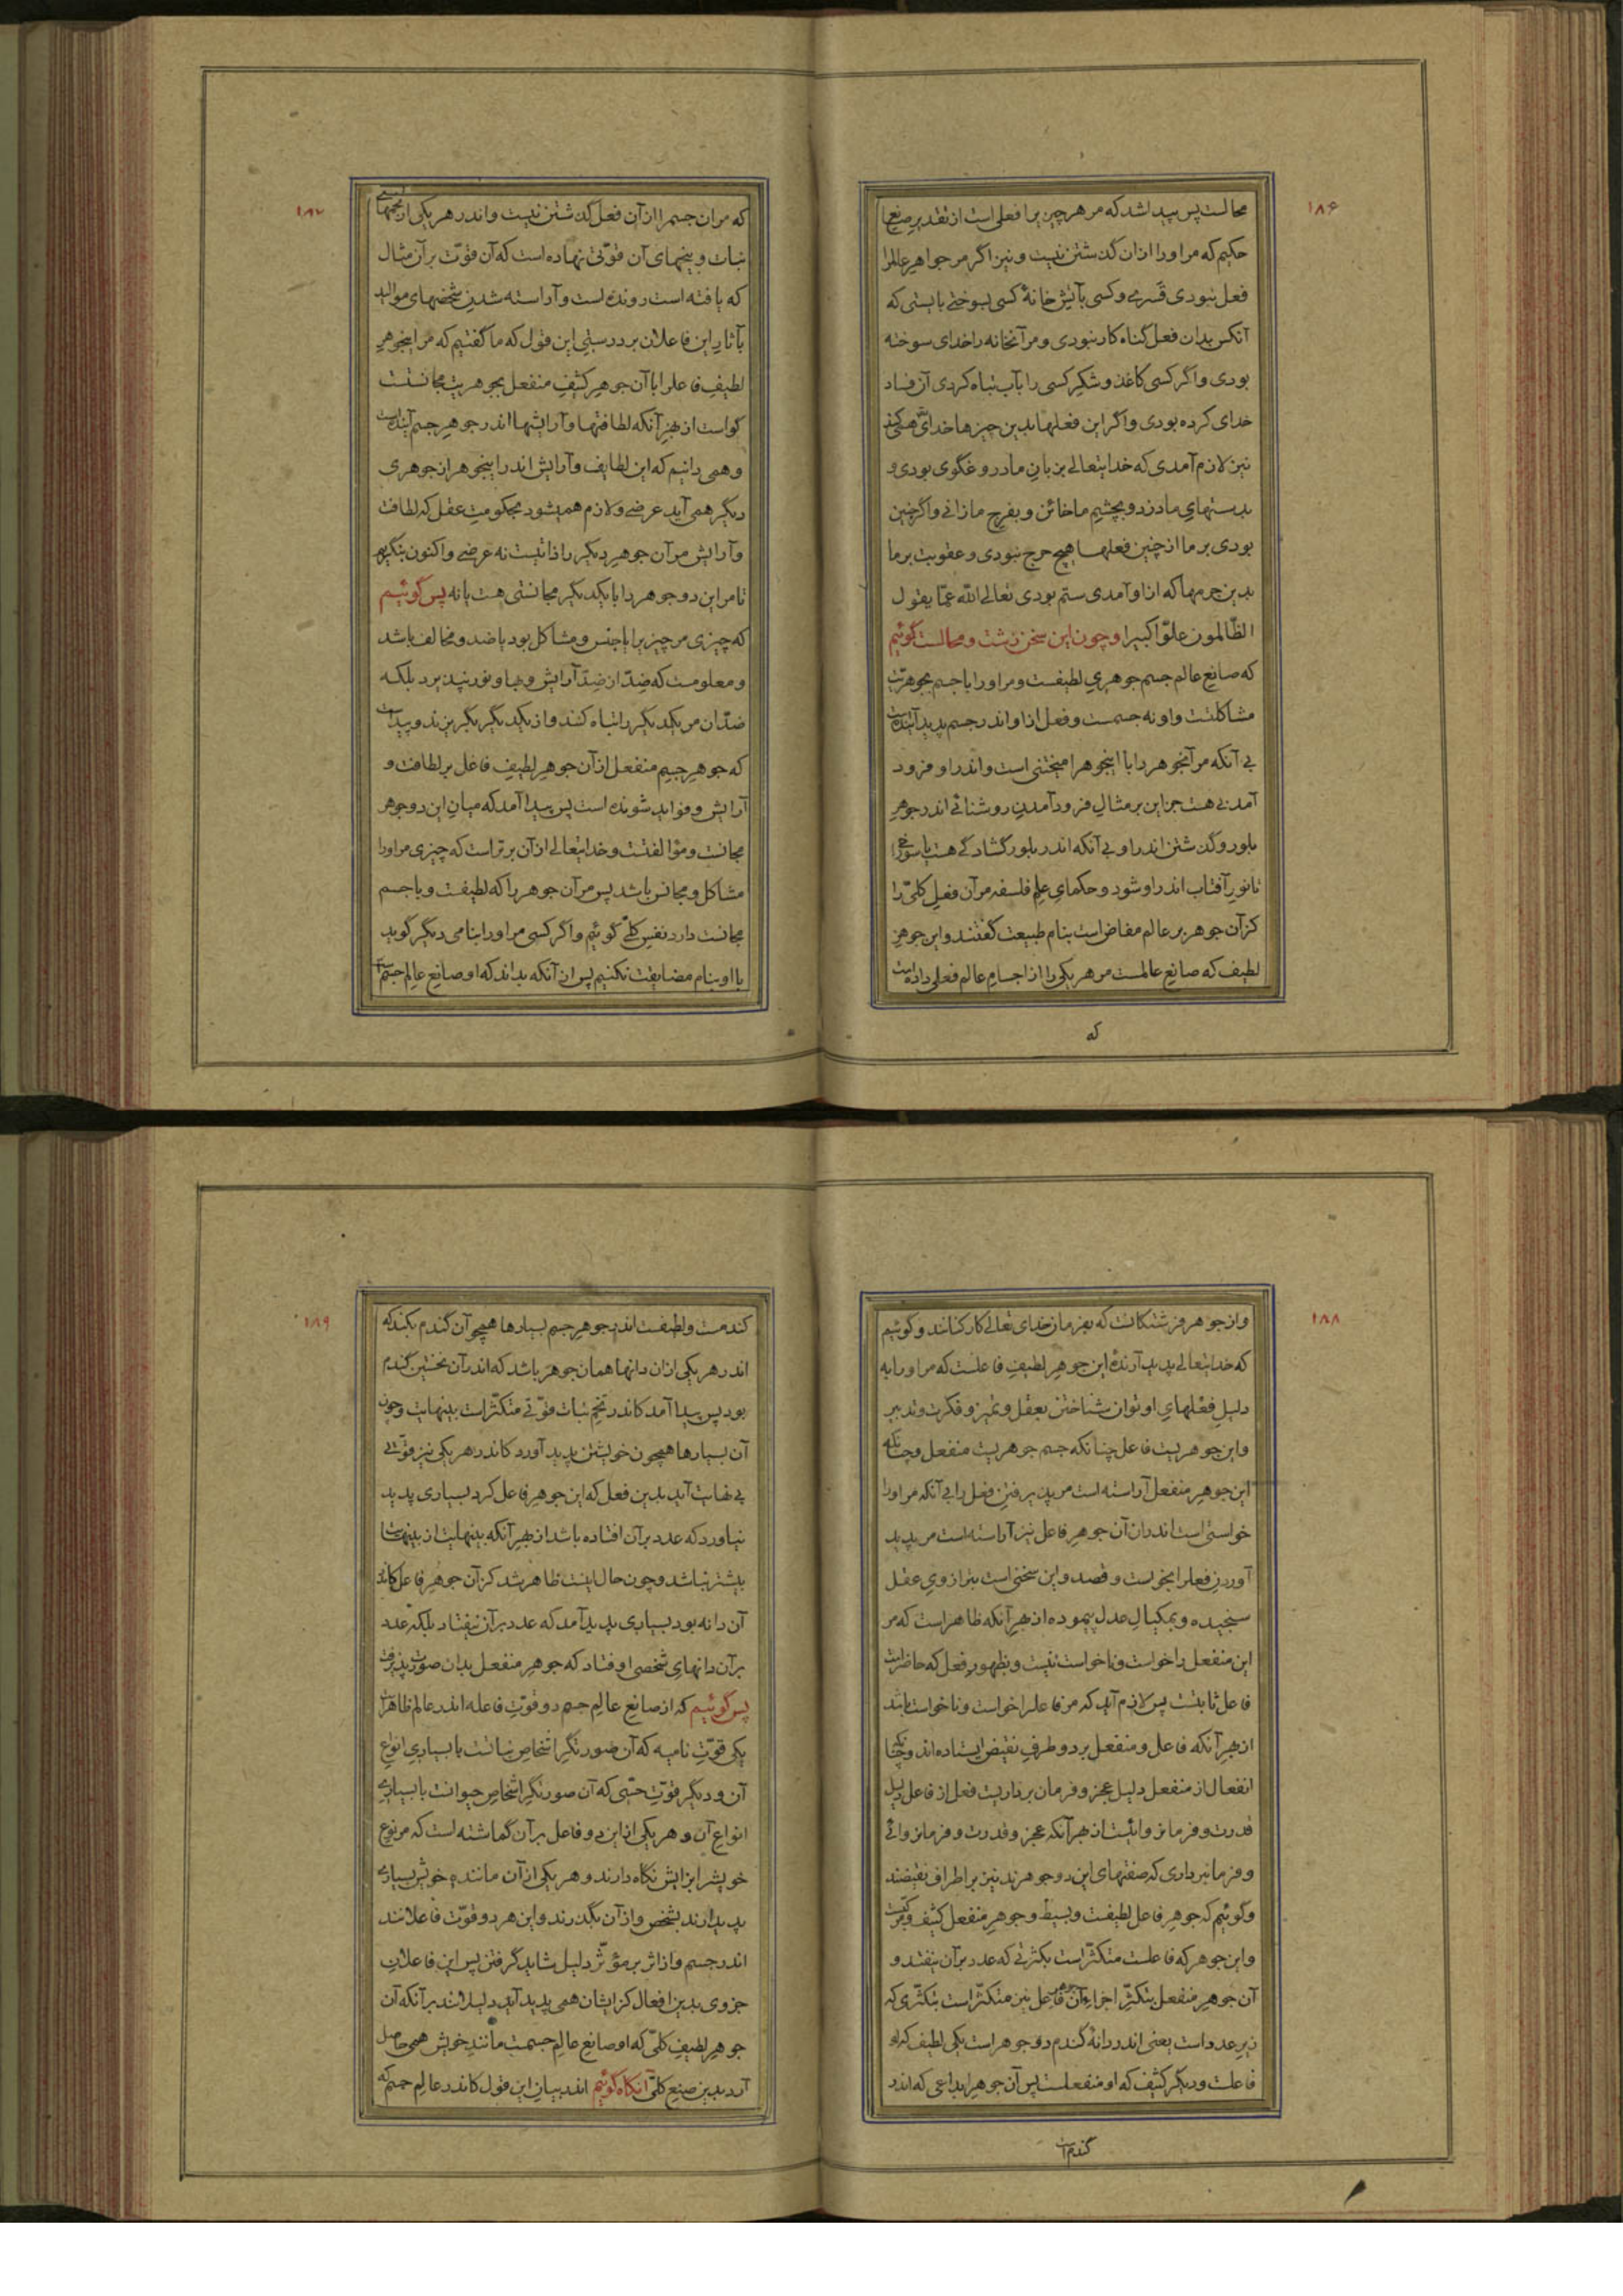 ۱۸۶
محالست پس پیدا شد که مر هر چیزیرا فعلی است از تقدیرِ صانعِ
حکیم که مر اورا ازان گذشتن نیست و نیز اگر مر جواهرِ عالمرا
فعل نبودی قسری و کسی بآتش خانهٔ کسی بسوختی بایستی که
آنکس بدان فعل گناه کار نبودی و مر آنخانه را خدای سوخته
بودی و اگر کسی کاغذ و شکرِ کسی را بآب تباه کردی آن فساد
خدای کرده بودی و اگر این فعلها بدین چیزها خدای همی کند
نیز لازم آمدی که خدایتعالی بزبانِ ما دروغگوی بودی و
بدستهایِ ما دزد و بچشمِ ما خائن و بفرجِ ما زانی و اگر چنین
بودی بر ما از چنین فعلها هیچ حرج نبودی و عقوبت بر ما
بدین جرمها که ازاو آمدی ستم بودی تعالی الله عمّا یقول
الظّالمون علوّاً کبیرا و چون این سخن زشت و محالست گوئیم
که صانعِ عالمِ جسم جوهریِ لطیفست و مر اورا با جسم بجوهریّت
مشاکلتست و او نه جسمست و فعل ازاو اندر جسم پدید آینده است
بی آنکه مر آنجوهر را با اینجوهر امیختنی است و اندر او فرود
آمدنی هست جز این بر مثالِ فرود آمدنِ روشنائی اندر جوهرِ
بلور و گذشتن اندر او بی آنکه اندر بلور گشادگی هست یا سوراخی
تا نورِ آفتاب اندر او شود و حکمایِ علمِ فلسفه مر آن فعلِ کلّی را
کز آن جوهر بر عالم مفاض است بنام طبیعت گفتند و این جوهرِ
لطیف که صانعِ عالمست مر هر یکی را از اجسامِ عالم فعلی داده است
که
۱۸۷
که مر ان جسم را از آن فعل گذشتن نیست و اندر هر یکی از تخمهای
نبات و بیخهای آن قوّتی نهاده است که آن قوّت بر آن مثال
که یافته است رونده است و آراسته شدنِ شخصهای موالید
بآثارِ این فاعلان بر درستیِ این قول که ما گفتیم که مر اینجوهرِ
لطیفِ فاعلرا با آن جوهرِ کثیفِ منفعل بجوهریت مجانستست
گواست از بهرِ آنکه لطافتها و آرایشها اندر جوهرِ جسم آینده است
و همی دانیم که این لطایف و آرایش اندر اینجوهر از جوهری
دیگر همی آید عرضی و لازم همیشود بحکومتِ عقل که لطافت
و آرایش مر آن جوهرِ دیگر را ذاتیست نه عرضی و اکنون بنگریم
تا مر این دو جوهر را با یکدیگر مجانستی هست یا نه پس گوئیم
که چیزی مر چیزیرا یا جنس و مشاکل بود یا ضد و مخالف باشد
و معلومست که ضدّ از ضدّ آرایش و بها و نور نپذیرد بلکه
ضدّان مر یکدیگر را تباه کنند و از یکدیگر بگریزند و پیداست
که جوهرِ جسمِ منفعل از آن جوهرِ لطیفِ فاعل بر لطافت و
آرایش و فواید شونده است پس پیدا آمد که میانِ این دو جوهر
مجانست و مؤالفتست و خدایتعالی از آن برتر است که چیزی مر اورا
مشاکل و مجانس باشد پس مر آن جوهر را که لطیفست و با جسم
مجانست دارد نفسِ کلّی گوئیم و اگر کسی مر اورا بنامی دیگر گوید
با او بنام مضایقت نکنیم پس از آنکه بداند که او صانعِ عالمِ جسم است
۱۸۸
و از جوهرِ فرشتگانست که بفرمانِ خدای تعالی کارکنانند و گوئیم
که خدایتعالی پدید آرندهٔ این جوهرِ لطیفِ فاعلست که مر اورا به
دلیلِ فعلهایِ او توان شناختن بعقل و تمیز و فکرت و تدبیر
و این جوهریست فاعل چنانکه جسم جوهریست منفعل و چنانکه
این جوهرِ منفعل آراسته است مر پذیرفتنِ فعل را بی آنکه مر اورا
خواستی است اندران آن جوهرِ فاعل نیز آراسته است مر پدید
آوردنِ فعلرا بخواست و قصد و این سخنی است بترازویِ عقل
سنجیده و بمکیالِ عدل پیموده از بهرِ آنکه ظاهر است که مر
این منفعل را خواست و ناخواست نیست و بظهورِ فعل که حاضر است
فاعل ثابتست پس لازم آید که مر فاعلرا خواست و ناخواست باشد
از بهرِ آنکه فاعل و منفعل بر دو طرفِ نقیض ایستاده اند و چنانکه
انفعال از منفعل دلیلِ عجز و فرمان برداریست فعل از فاعل دلیلِ
قدرت و فرمانروائیست از بهر آنکه عجز و قدرت و فرمانروائی
و فرمانبرداری که صفتهای این دو جوهرند نیز بر اطرافِ نقیضند
و گوئیم که جوهرِ فاعل لطیفست و بسیط و جوهرِ منفعل کثیف و مرکّبست
و این جوهر که فاعلست متکثّر است بکثرتی که عدد بر آن نیفتد و
آن جوهرِ منفعل بتکثّرِ اجزاءِ آن جوهرِ فاعل نیز متکثّر است بتکثّری که
زیرِ عدد است یعنی اندر دانهٔ گندم دو جوهر است یکی لطیف که او
فاعلست و دیگر کثیف که او منفعلست پس آن جوهرِ ابداعی که اندر
گندم است
۱۸۹
کندمست و لطیفست اندر جوهرِ جسم بسیارها همچو آن گندم بکند که
اندر هر یکی ازان دانها همان جوهر باشد که اندر آن نخستین گندم
بود پس پیدا آمد کاندر تخمِ نبات قوّتی متکثّر است بینهایت و چون
آن بسیارها همچون خویشتن پدید آورد کاندر هر یکی نیز قوّتی
بی نهایت آید بدین فعل که این جوهرِ فاعل کرد بسیاری پدید
نیاورد که عدد بر آن افتاده باشد از بهرِ آنکه بینهایت از بینهایت
بیشتر نباشد و چون حال اینست ظاهر شد کز آن جوهرِ فاعل کاندر
آن دانه بود بسیاری پدید آمد که عدد بر آن نیفتاد بلکه عدد
بر آن دانهایِ شخصی اوفتاد که جوهرِ منفعل بدان صورت پذیرفت
پس گوئیم که از صانعِ عالمِ جسم دو قوّتِ فاعله اندر عالم ظاهر است
یکی قوّتِ نامیه که آن صورتگرِ اشخاصِ نباتست با بسیاریِ انواعِ
آن و دیگر قوّتِ حسّی که آن صورتگرِ اشخاصِ حیوانست با بسیاریِ
انواعِ آن و هر یکی از این دو فاعل بر آن گماشته است که مر نوعِ
خویشرا بزایش نگاه دارند و هر یکی از آن مانندهٔ خویش بسیاری
پدید آرند بشخص و از آن بگذرند و این هر دو قوّت فاعلانند
اندر جسم و از اثر بر مؤثّر دلیل شاید گرفتن پس این فاعلانِ
جزوی بدین افعال کز ایشان همی پدید آید دلیلانند بر آنکه آن
جوهرِ لطیفِ کلّی که او صانعِ عالمِ جسمست مانندِ خویش همی حاصل
آرد بدین صنعِ کلّی آنگاه گوئیم اندر بیانِ این قول کاندر عالمِ جسم که